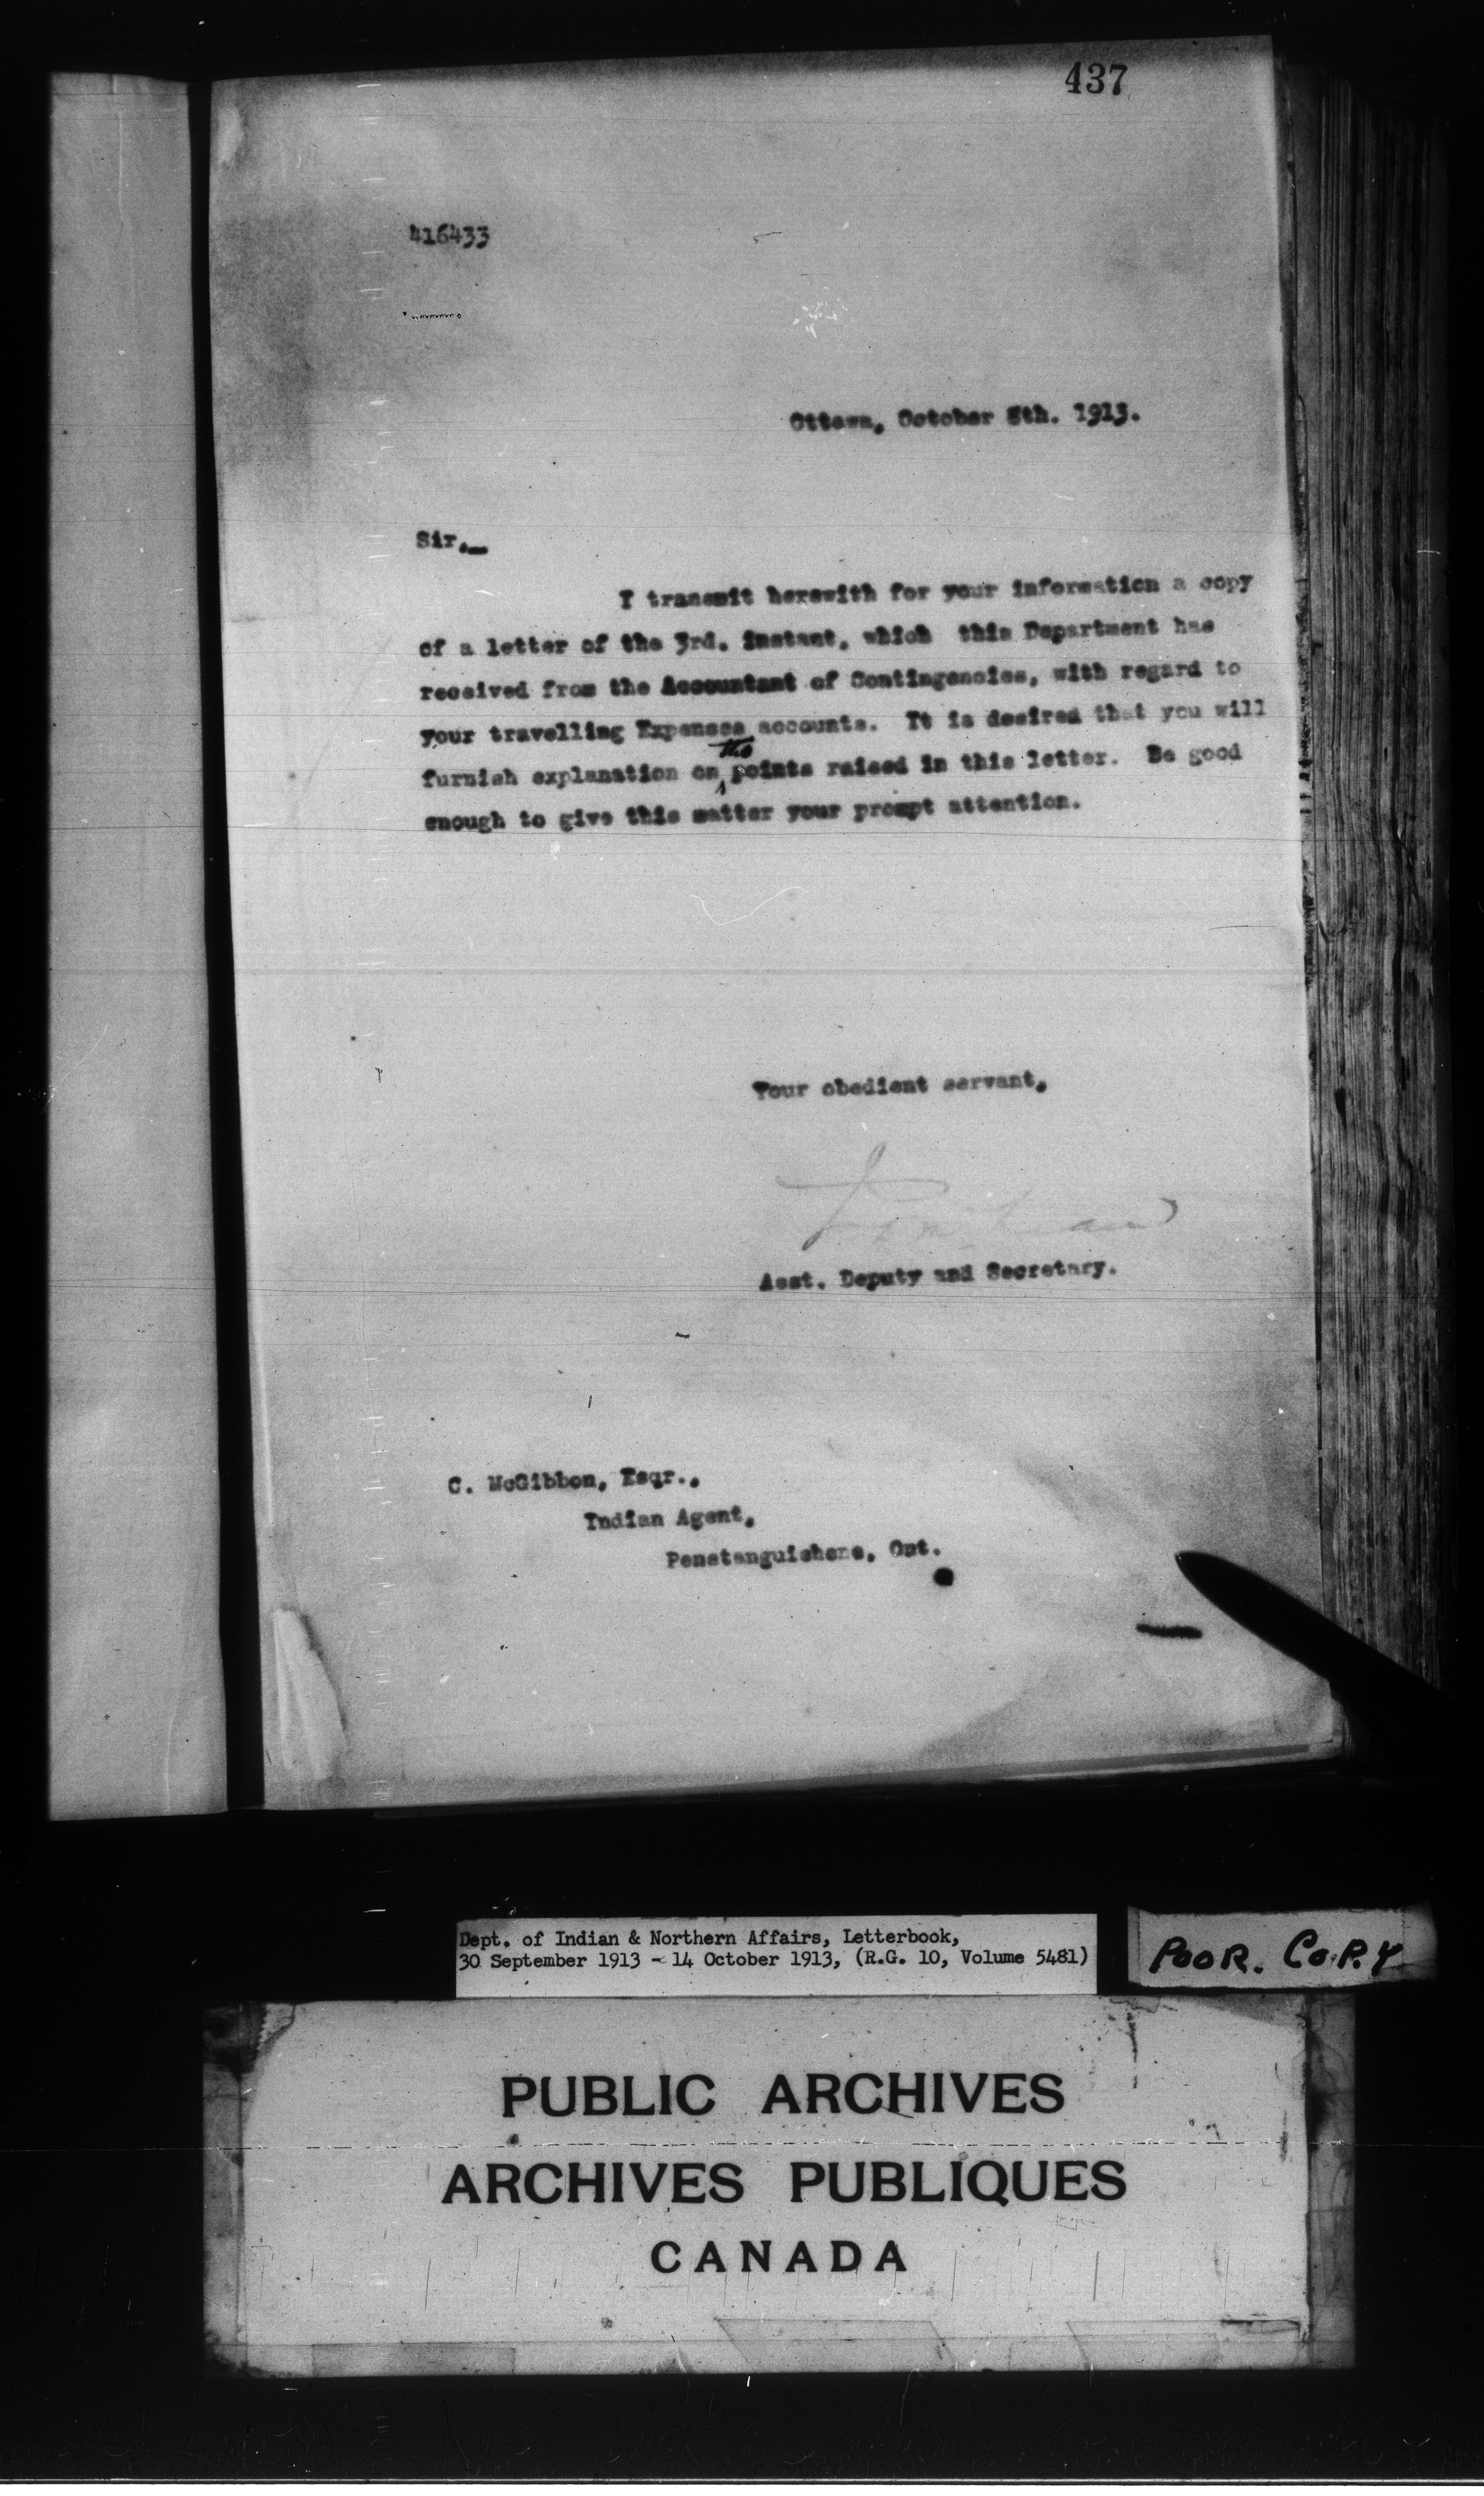 437
416433
Ottawa, October 8th. 1913.
Sir,_
I transmit herewith for your information a copy
of a letter of the 3rd. instant, which this Department has
received from the Accountant of Contingencies, with regard to
your travelling Expenses accounts. It is desired that you will
the
furnish explanation on points raised in this letter. Be good
enough to give this matter your prompt attention.
Your obedient servant,
Asst. Deputy and Secretary.
C. McGibbon, Esqr.,
Indian Agent,
Penetanguishene, Ont.
Dept. of Indian & Northern Affairs, Letterbook,
30 September 1913 - 14 October 1913, (R.G. 10, Volume 5481)
POOR. COPY
PUBLIC ARCHIVES
ARCHIVES PUBLIQUES
CANADA